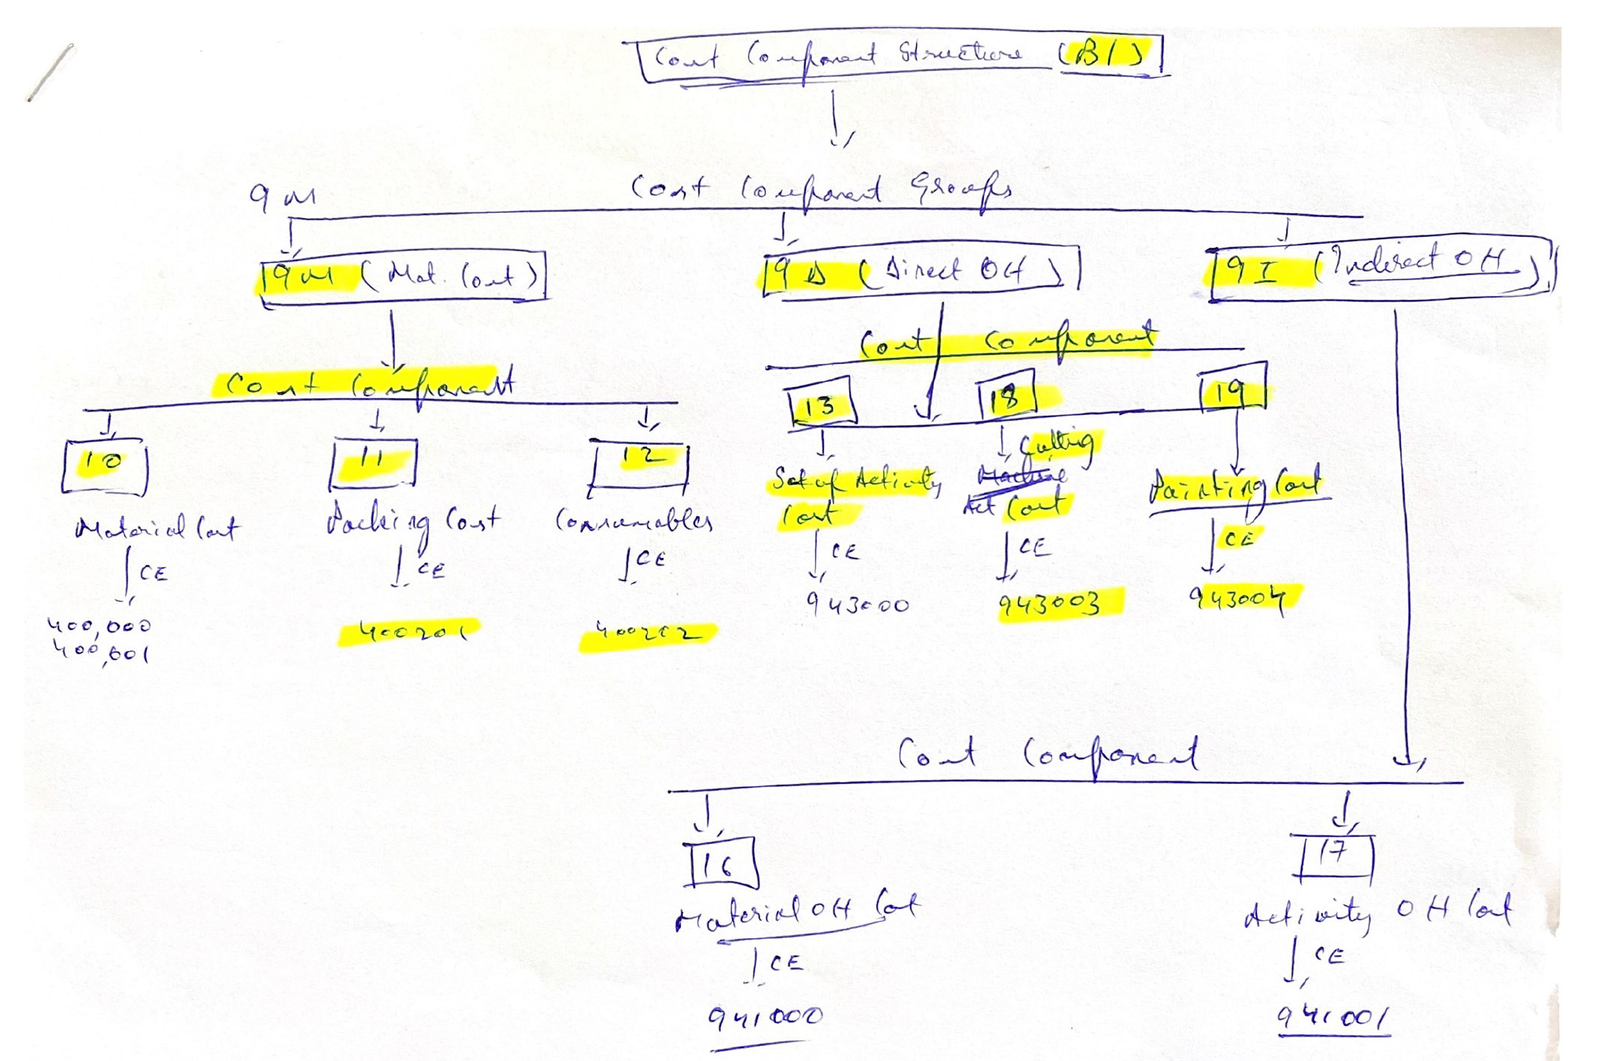 Cost Component Structure (B1)
9M
Cost Component Groups
9M (Mat. Cost)
9D (Direct OH)
9I (Indirect OH)
Cost Component
Cost Component
13
18
19
10
11
12
Cutting
Set up Activity
Machine
Painting Cost
Cost
Act Cost
Material Cost
Packing Cost
Consumables
CE
CE
CE
CE
CE
CE
943000
943003
943004
400,000
400201
400202
400,001
Cost Component
16
17
Material OH Cost
Activity OH Cost
CE
CE
941000
941001